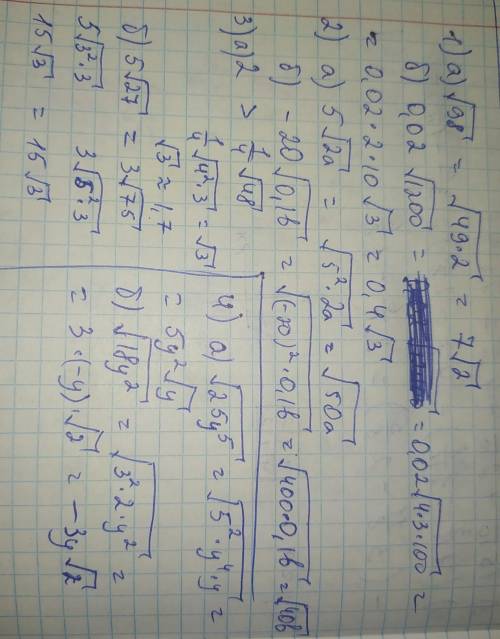 1) а) √98 = √49·2 = 7√2
б) 0,02 √1200 = = 0,02√4·3·100 =
= 0,02·2·10√3 = 0,4√3
2) а) 5√2a = √5²·2a = √50a
б) -20√0,1b = √(-20)²·0,1b = √400·0,1b = √40b
3) а) 2 > 1/4√48
1/4√4²·3 = √3
√3 ≈ 1,7
б) 5√27 = 3√75
5√3²·3 3√5²·3
15√3 = 15√3
4) а) √25y⁵ = √5²·y⁴·y =
= 5y²√y
б) √18y² = √3²·2·y² =
= 3·(-y)·√2 = -3y√2